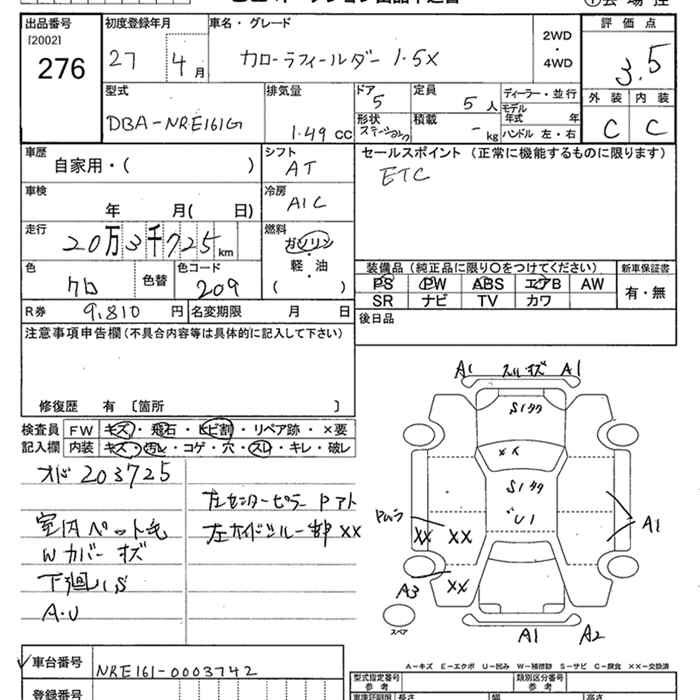 出品番号
[2002]
276
初度登録年月
27
4月
車名・グレード
カローラフィールダー 1.5X
2WD
・
4WD
評価点
3.5
型式
DBA-NRE161G
排気量
1.49 CC
ドア
5
定員
5人
形状
ステーション
積載
- kg
ディーラー・並行
モデル年式 年
ハンドル 左・右
外装 内装
C C
車歴
自家用・( )
シフト
AT
セールスポイント (正常に機能するものに限ります)
ETC
車検
年 月( 日)
冷房
A/C
走行
20万3千725km
燃料
ガソリン
・
軽・油
( )
色
クロ
色替
・
色コード
209
装備品 (純品に限り○をつけてください)
PS PW ABS エアB AW
SR ナビ TV カワ
新車保証書
有・無
R券 9,810 円
名変期限 月 日
後日品
注意事項申告欄 (不具合内容等は具体的に記入して下さい)
修復歴 有 〔箇所 〕
検査員
記入欄
FW キズ・飛石・ヒビ割・リペア跡・×要
内装 キズ・汚れ・コゲ・穴・スレ・キレ・破レ
オド 203725
室内ペット毛
Wカバー キズ
下廻りS
A・U
左センターピラー Pアト
左サイドシル一部 XX
A1 A1
S1タク
S1タク
U1
Pムラ
XX XX
XX
A3
A1
A1 A2
スペア
A-キズ E-エクボ U-凹み W-補修跡 S-サビ C-腐食 XX-交換済
車台番号
NRE161-0003742
登録番号
型式指定番号
参考
類別区分番号
参考